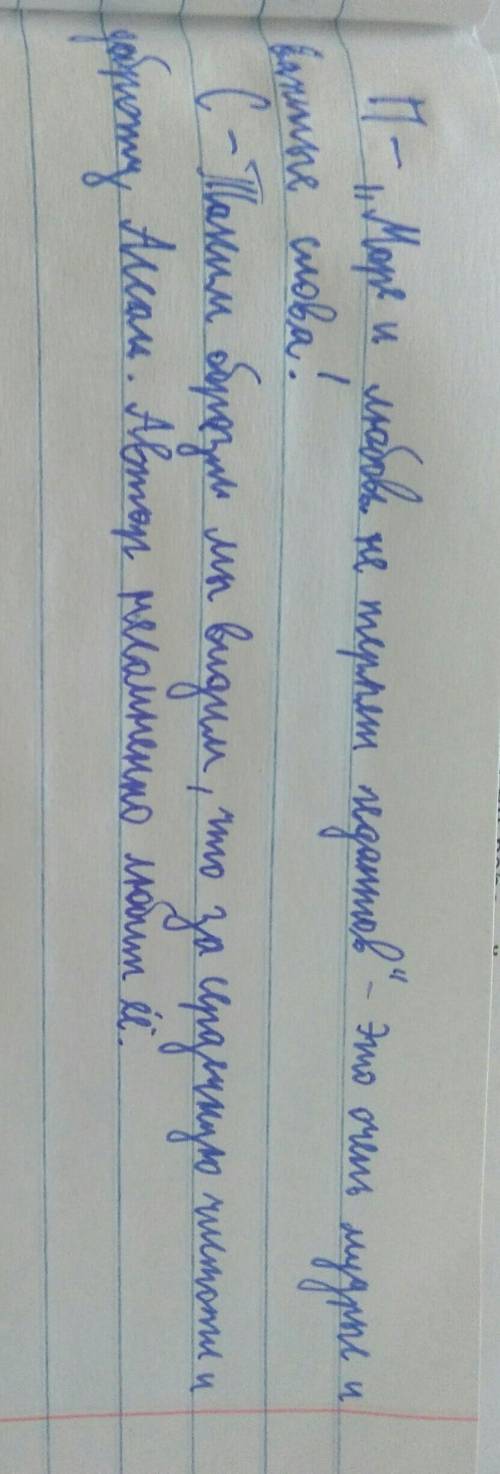 П - „Море и любовь не терпят педантов“ - это очень мудрые и
важные слова!
С - Таким образом мы видим, что за сердечную чистоту и
доброту Ассоль. Автор несомненно любит её.